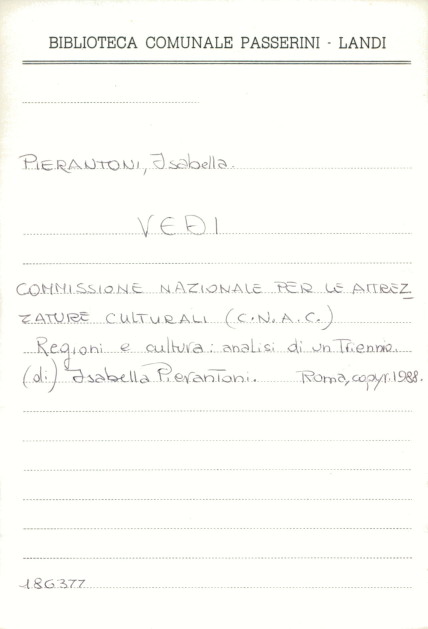 BIBLIOTECA COMUNALE PASSERINI - LANDI
PIERANTONI, Isabella.
VEDI
COMMISSIONE NAZIONALE PER LE ATTREZ
ZATURE CULTURALI (C.N.A.C.)
Regioni e cultura: analisi di un Triennio.
(di) Isabella Pierantoni. Roma, copyr. 1988.
186377